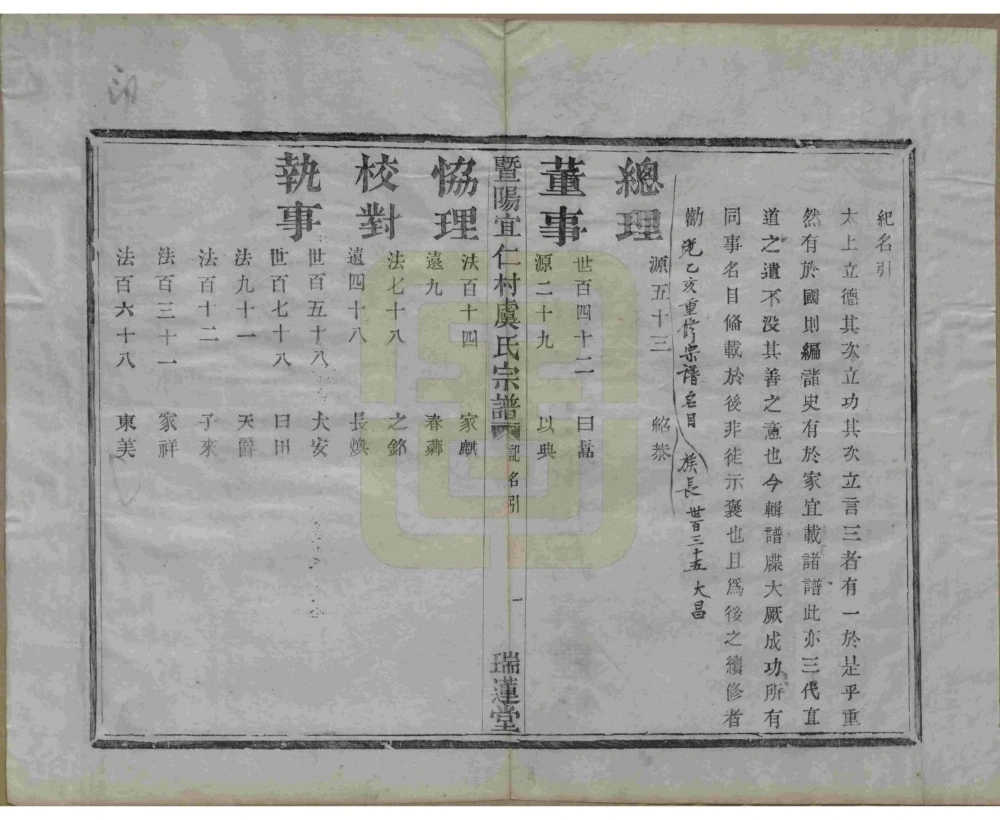 紀名引
太上立德其次立功其次立言三者有一於是乎重
然有於國則編諸史有於家宜載諸譜此亦三代直
道之遺不没其善之意也今輯譜牒大厥成功所有
同事名目俻載於後非徒示褒也且爲後之續修者
勸 光乙亥重修宗譜名目 族長 世百三十五 大昌
總理 源五十三 紹恭
董事 世百四十二 曰勗
源二十九 以典
暨陽宜仁村虞氏宗譜 記名引 一 瑞蓮堂
恊理 法百十四 家麒
遠九 春薌
校對 法七十八 之銘
遠四十八 長煥
執事 世百五十八 大安
世百七十八 曰田
法九十一 天爵
法百十二 子來
法百三十一 家祥
法百六十八 東美